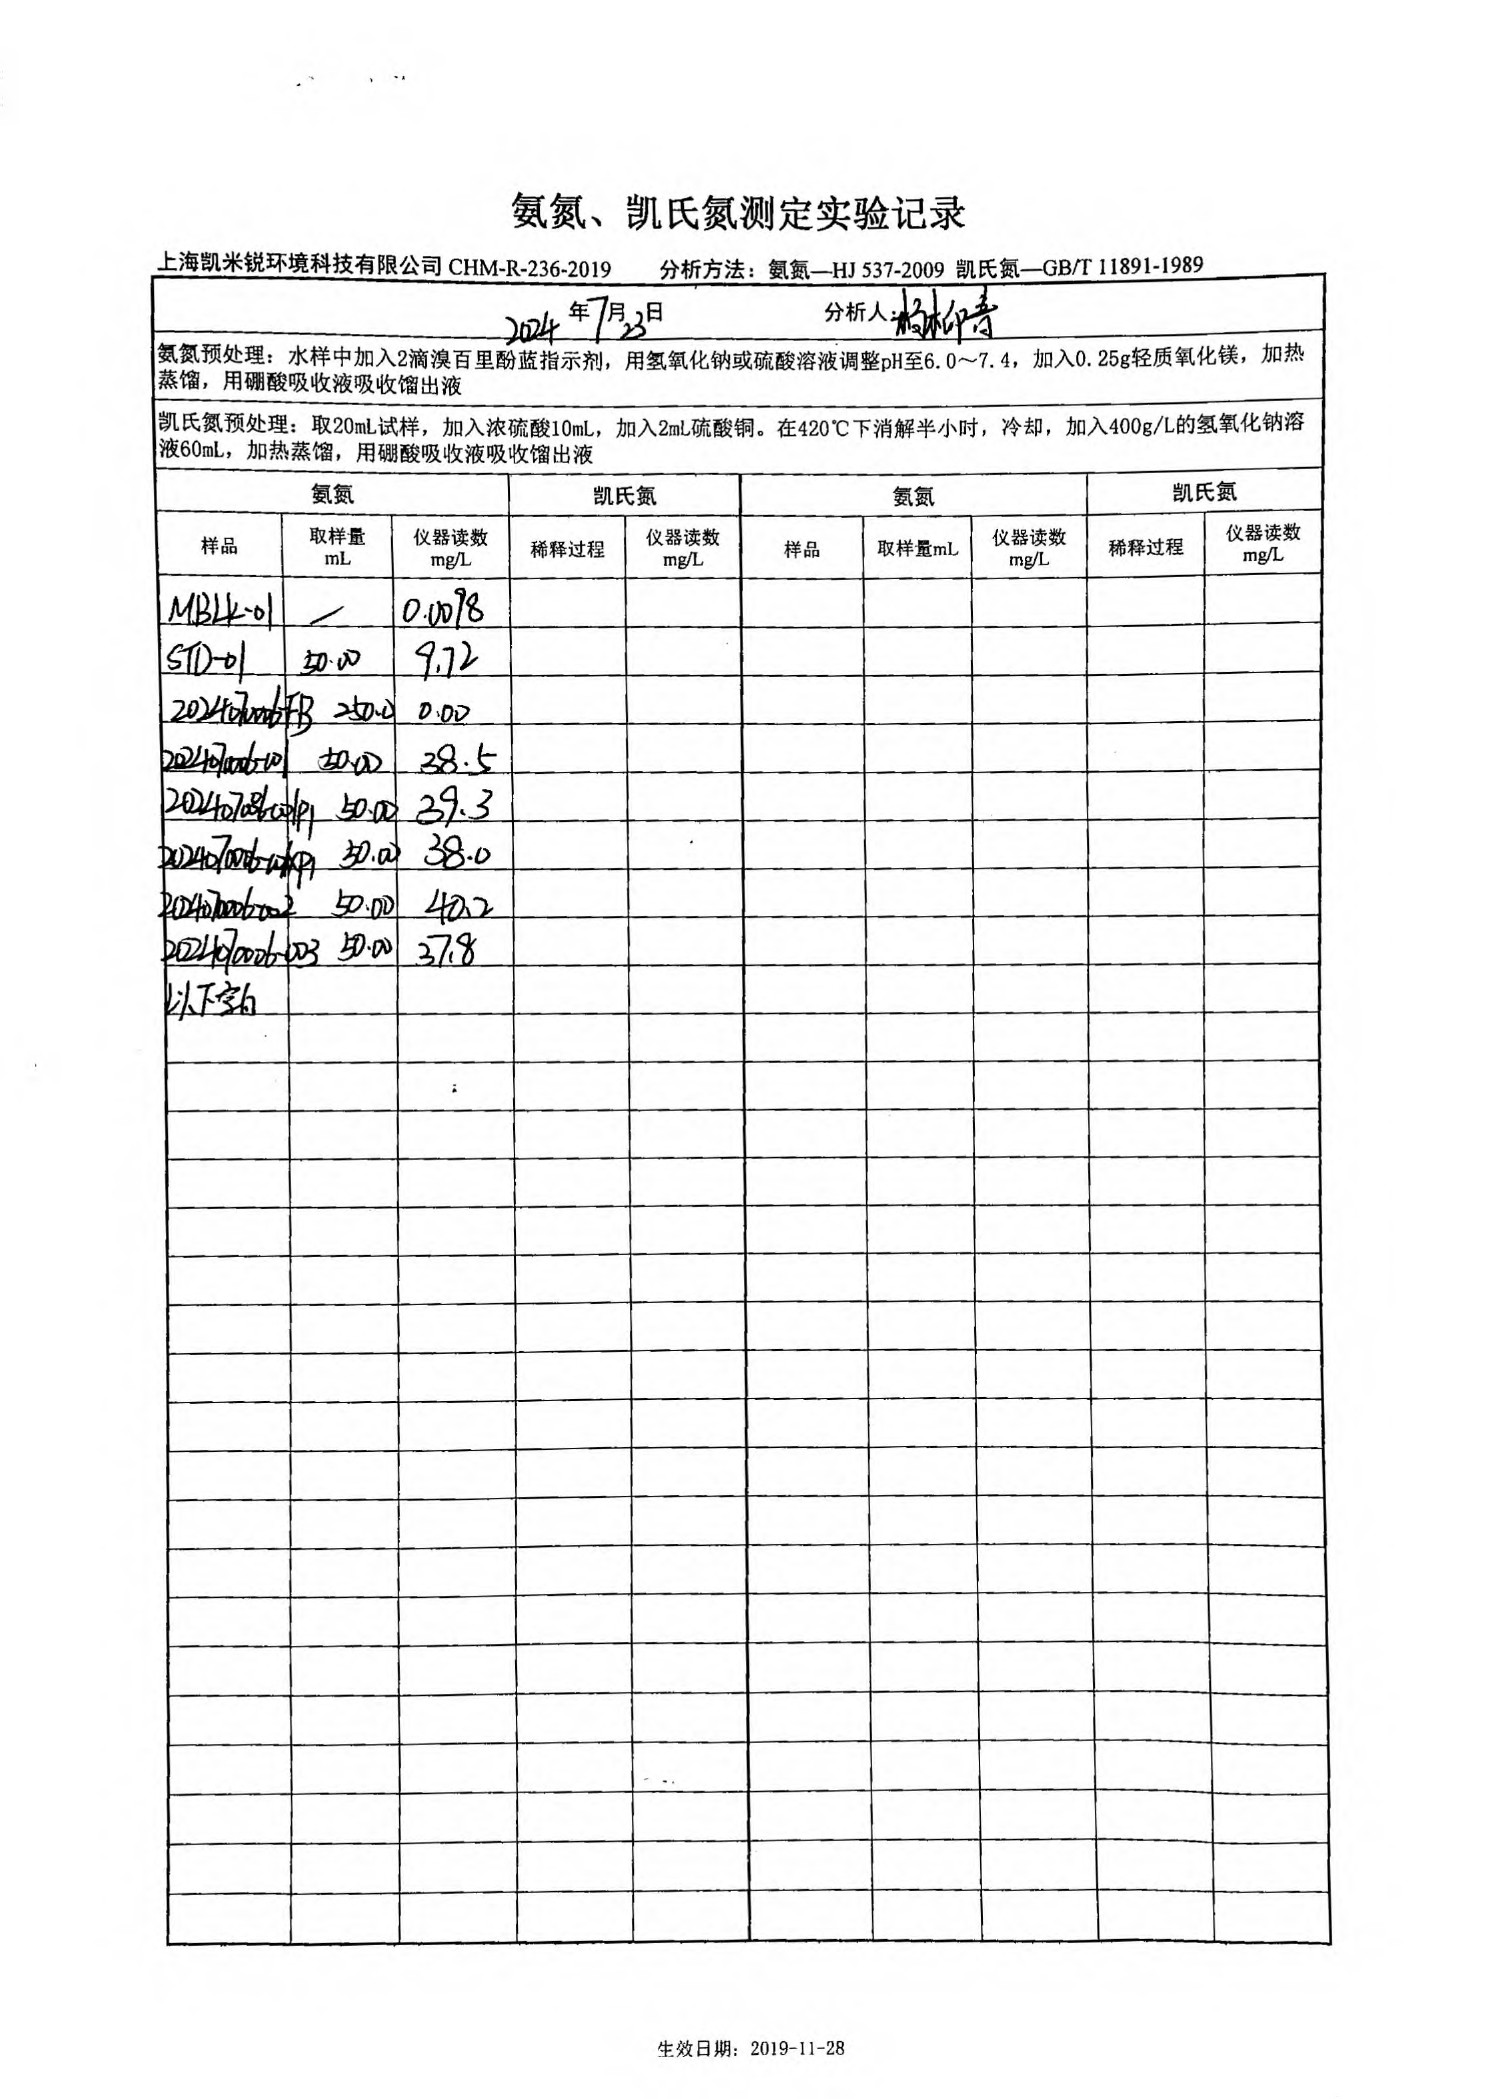 氨氮、凯氏氮测定实验记录
上海凯米锐环境科技有限公司 CHM-R-236-2019 分析方法：氨氮—HJ 537-2009 凯氏氮—GB/T 11891-1989
2024 年 7 月 23 日 分析人：
氨氮预处理：水样中加入2滴溴百里酚蓝指示剂，用氢氧化钠或硫酸溶液调整pH至6.0～7.4，加入0.25g轻质氧化镁，加热
蒸馏，用硼酸吸收液吸收馏出液
凯氏氮预处理：取20mL试样，加入浓硫酸10mL，加入2mL硫酸铜。在420℃下消解半小时，冷却，加入400g/L的氢氧化钠溶
液60mL，加热蒸馏，用硼酸吸收液吸收馏出液
氨氮 凯氏氮 氨氮 凯氏氮
样品 取样量 mL 仪器读数 mg/L 稀释过程 仪器读数 mg/L 样品 取样量mL 仪器读数 mg/L 稀释过程 仪器读数 mg/L
MBLK-01 / 0.0098
STD-01 50.00 9.72
2024070006FB 250.0 0.00
2024070006-001 50.00 38.5
50.00 39.3
50.00 38.0
2024070006-002 50.00 40.2
2024070006-003 50.00 37.8
以下空白
生效日期：2019-11-28